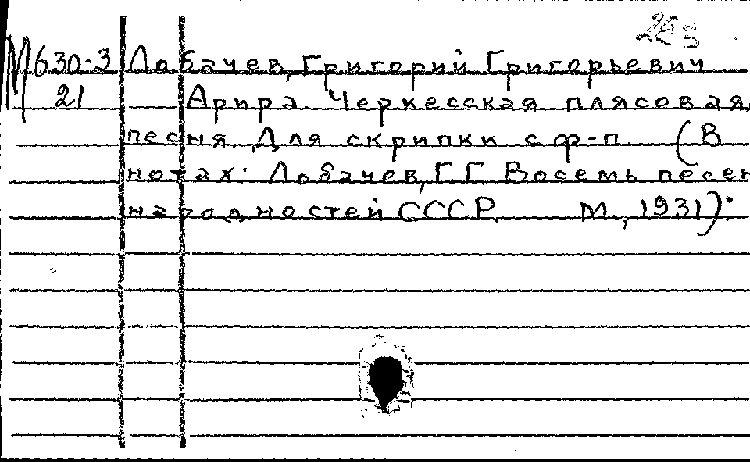 М630-3 Лобачев, Григорий Григорьевич
21 Арира. Черкесская плясовая
песня. Для скрипки с ф-п. (В
нотах: Лобачев, Г.Г. Восемь песен
народностей СССР. М., 1931).